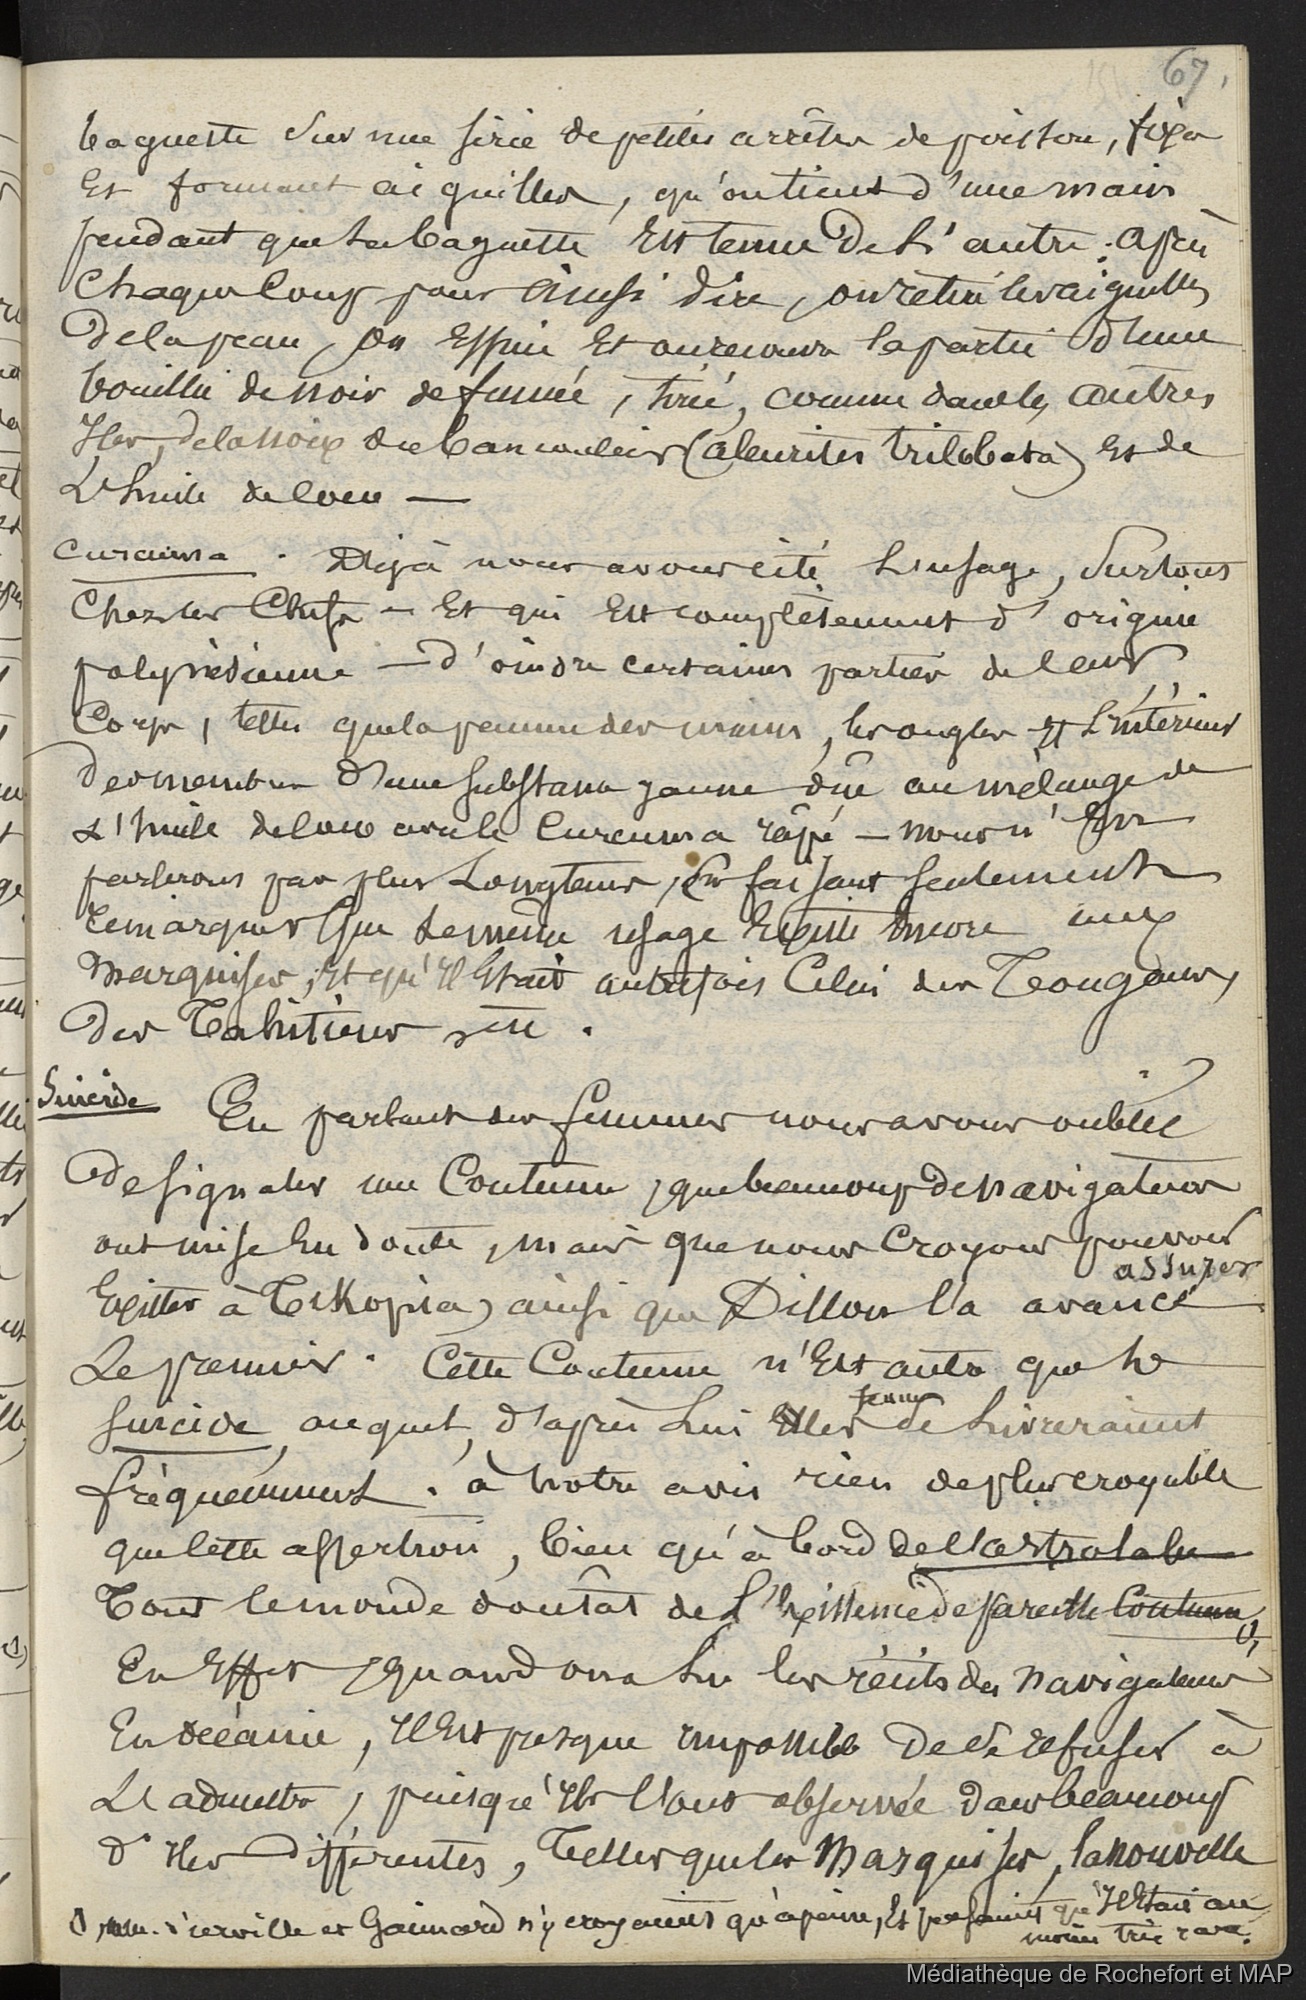 67.
baguette sur une série de petites arrêtes de poisson, fixées
et formant aiguilles, qu'on tient d'une main
pendant que la baguette est tenue de l'autre. Après
chaque coup pour ainsi dire, on retire les aiguilles
de la peau, on essuie et on recouvre la partie d'une
bouillie de noir de fumée, tiré, comme dans les autres
Iles, de la noix du bancoulier (aleurites triloba) et de
l'huile de coco —
Curcuma. Déjà nous avons cité l'usage, surtout
chez les Chefs — et qui est complètement d'origine
polynésienne — d'oindre certaines parties de leur
corps, telles que la paume des mains, les ongles et l'intérieur
des membres d'une substance jaune dûe au mélange de
l'huile de coco avec le Curcuma râpé — nous n'en
parlerons pas plus longtems, en faisant seulement
remarquer que le même usage existe encore aux
Marquises, et qu'il était autrefois celui des Tongans,
des Tahitiens, etc.
Suicide En parlant des femmes nous avons oublié
de signaler une Coutume, que beaucoup de navigateurs
ont mise en doute, mais que nous croyons pouvoir
assurer
exister à Tikopia, ainsi que Dillon l'a avancé
le premier. Cette Coutume n'est autre que le
suicide, auquel, d'après lui elles se livreraient
fréquemment. à notre avis rien de plus croyable
que cette assertion, bien qu'à bord de l'astrolabe
tout le monde doutât de l'existence de pareille Coutume (1)
En effet, quand on a lu les récits des navigateurs
en océanie, il est presque impossible de se refuser à
l'admettre, puisqu'ils l'ont observée dans beaucoup
d'Iles différentes, telles que les Marquises, la nouvelle
(1) MM. d'urville et Gaimard n'y croyaient qu'à peine, et pensaient qu'il était au
moins très rare.
Médiathèque de Rochefort et MAP